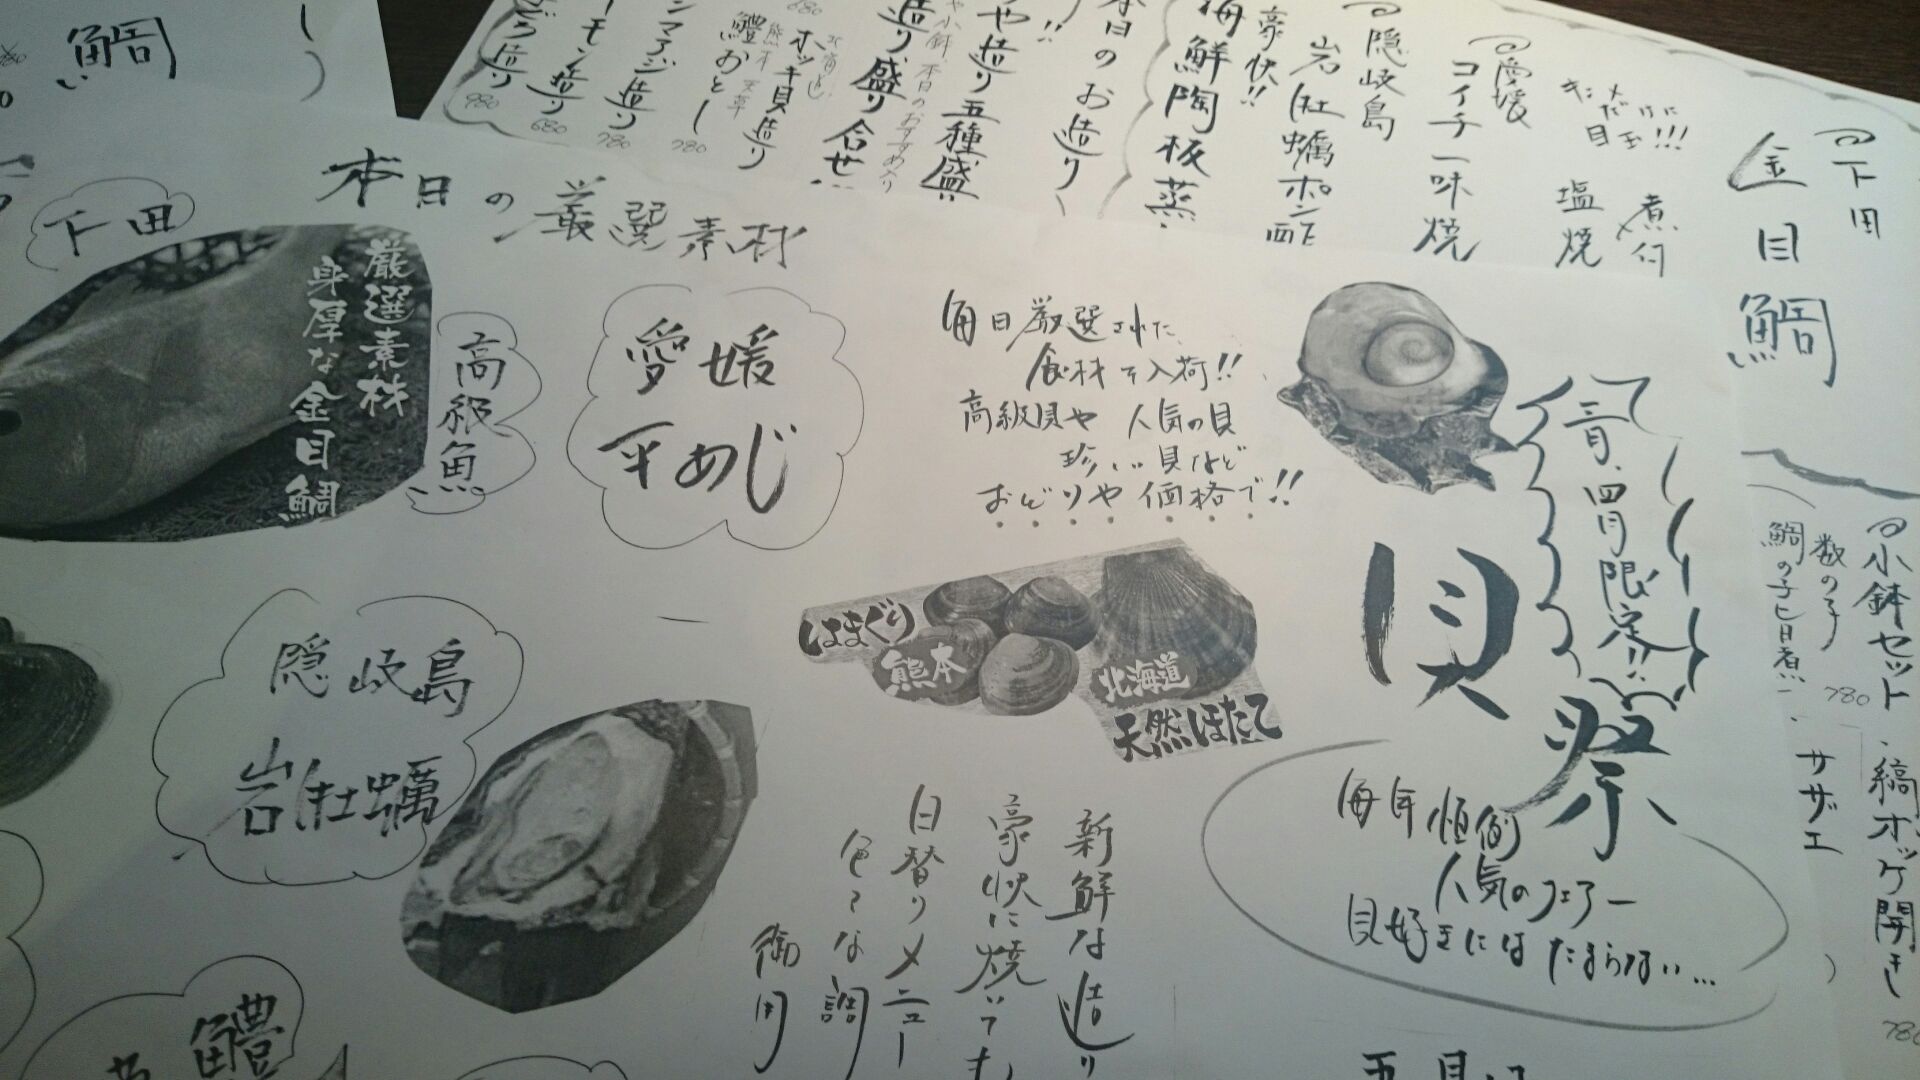 本日の厳選素材
下田
厳選素材
身厚な金目鯛
高級魚
愛媛
平あじ
隠岐島
岩牡蠣
毎日厳選された
食材を入荷!!
高級貝や 人気の貝
珍しい貝など
おどりや 価格で!!
はまぐり
熊本
北海道
天然ほたて
三月、四月限定!!
貝祭
毎年恒例
人気のフェアー
貝好きにはたまらない…
新鮮な造り
豪快に焼いても
日替りメニュー
色々な調
御用
鱧
鯛
下田
金目鯛
煮付
塩焼
愛媛
コイチ一味焼
隠岐島
岩牡蠣ポン酢
豪快!!
海鮮陶板蒸
本日のお造り
や造り五種盛
や小鉢、本日のおすすめ入り
造り盛り合せ
ホッキ貝造り
680
熊本 天草
鱧おとし
780
シマアジ造り
780
ーモン造り
680
ぐろ造り
980
小鉢セット
数の子
鯛の子旨煮
780
縞ホッケ開き
780
サザエ